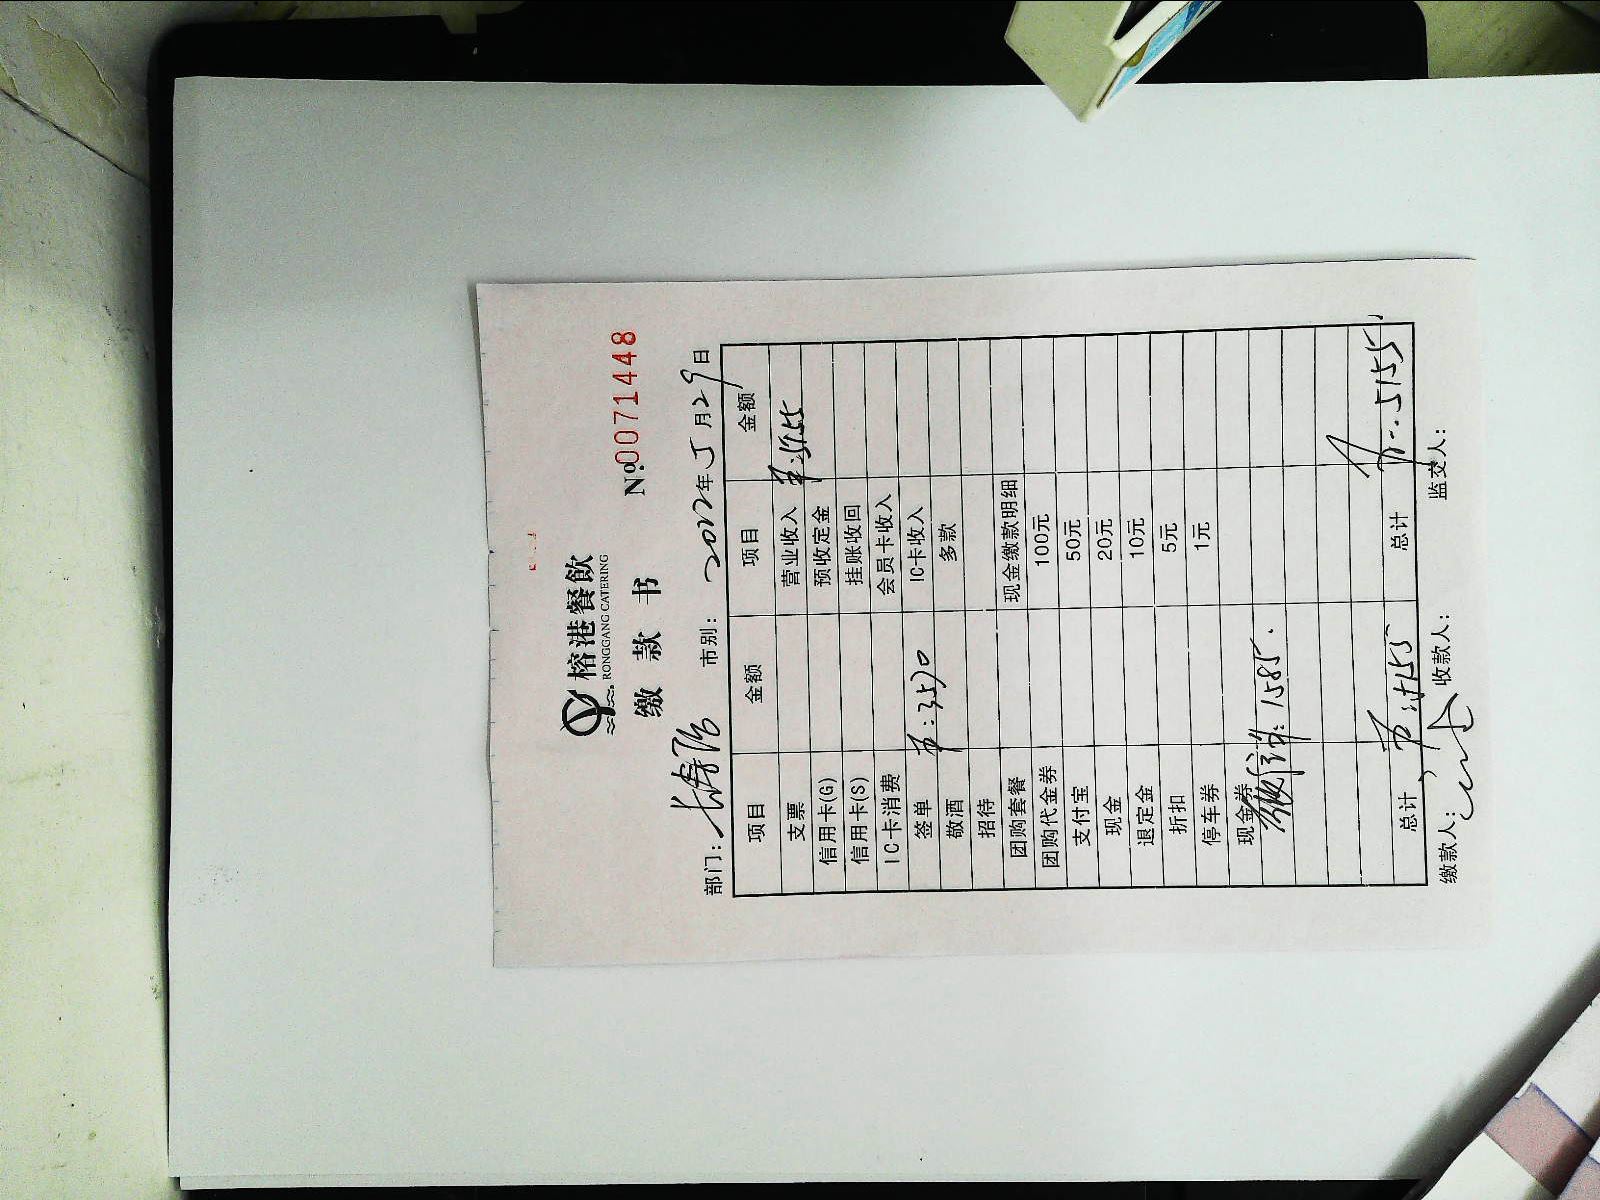 榕港餐飲
RONGGANG CATERING
缴 款 书
№0071448
部门: 市别: 2022年5月29日
项目 金额 项目 金额
支票 营业收入 5155
信用卡(G) 预收定金
信用卡(S) 挂账收回
IC卡消费 会员卡收入
签单 3570 IC卡收入
敬酒 多款
招待
团购套餐 现金缴款明细
团购代金券 100元
支付宝 50元
现金 20元
退定金 10元
折扣 5元
停车券 1元
现金券
微信: 1585.
总计 5155 总计 5155
缴款人: 收款人: 监交人: